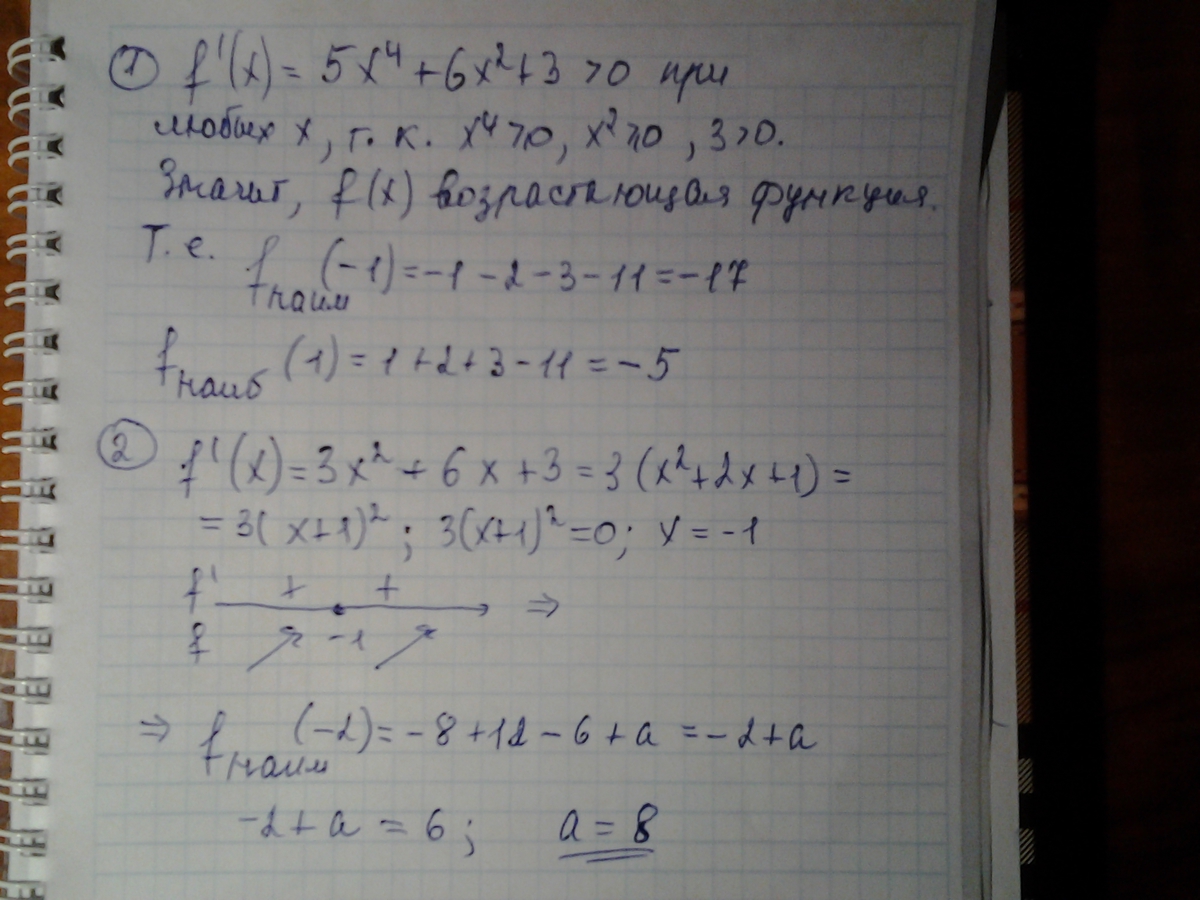 ① f'(x) = 5x⁴ + 6x² + 3 > 0 при
любых x, т. к. x⁴ ⩾ 0, x² ⩾ 0, 3 > 0.
Значит, f(x) возрастающая функция.
Т. е. f наим (-1) = -1 - 2 - 3 - 11 = -17
f наиб (1) = 1 + 2 + 3 - 11 = -5
② f'(x) = 3x² + 6x + 3 = 3(x² + 2x + 1) =
= 3(x+1)²; 3(x+1)² = 0; x = -1
f' + + ⇒
f ↗ -1 ↗
⇒ f наим (-2) = -8 + 12 - 6 + a = -2 + a
-2 + a = 6; a = 8